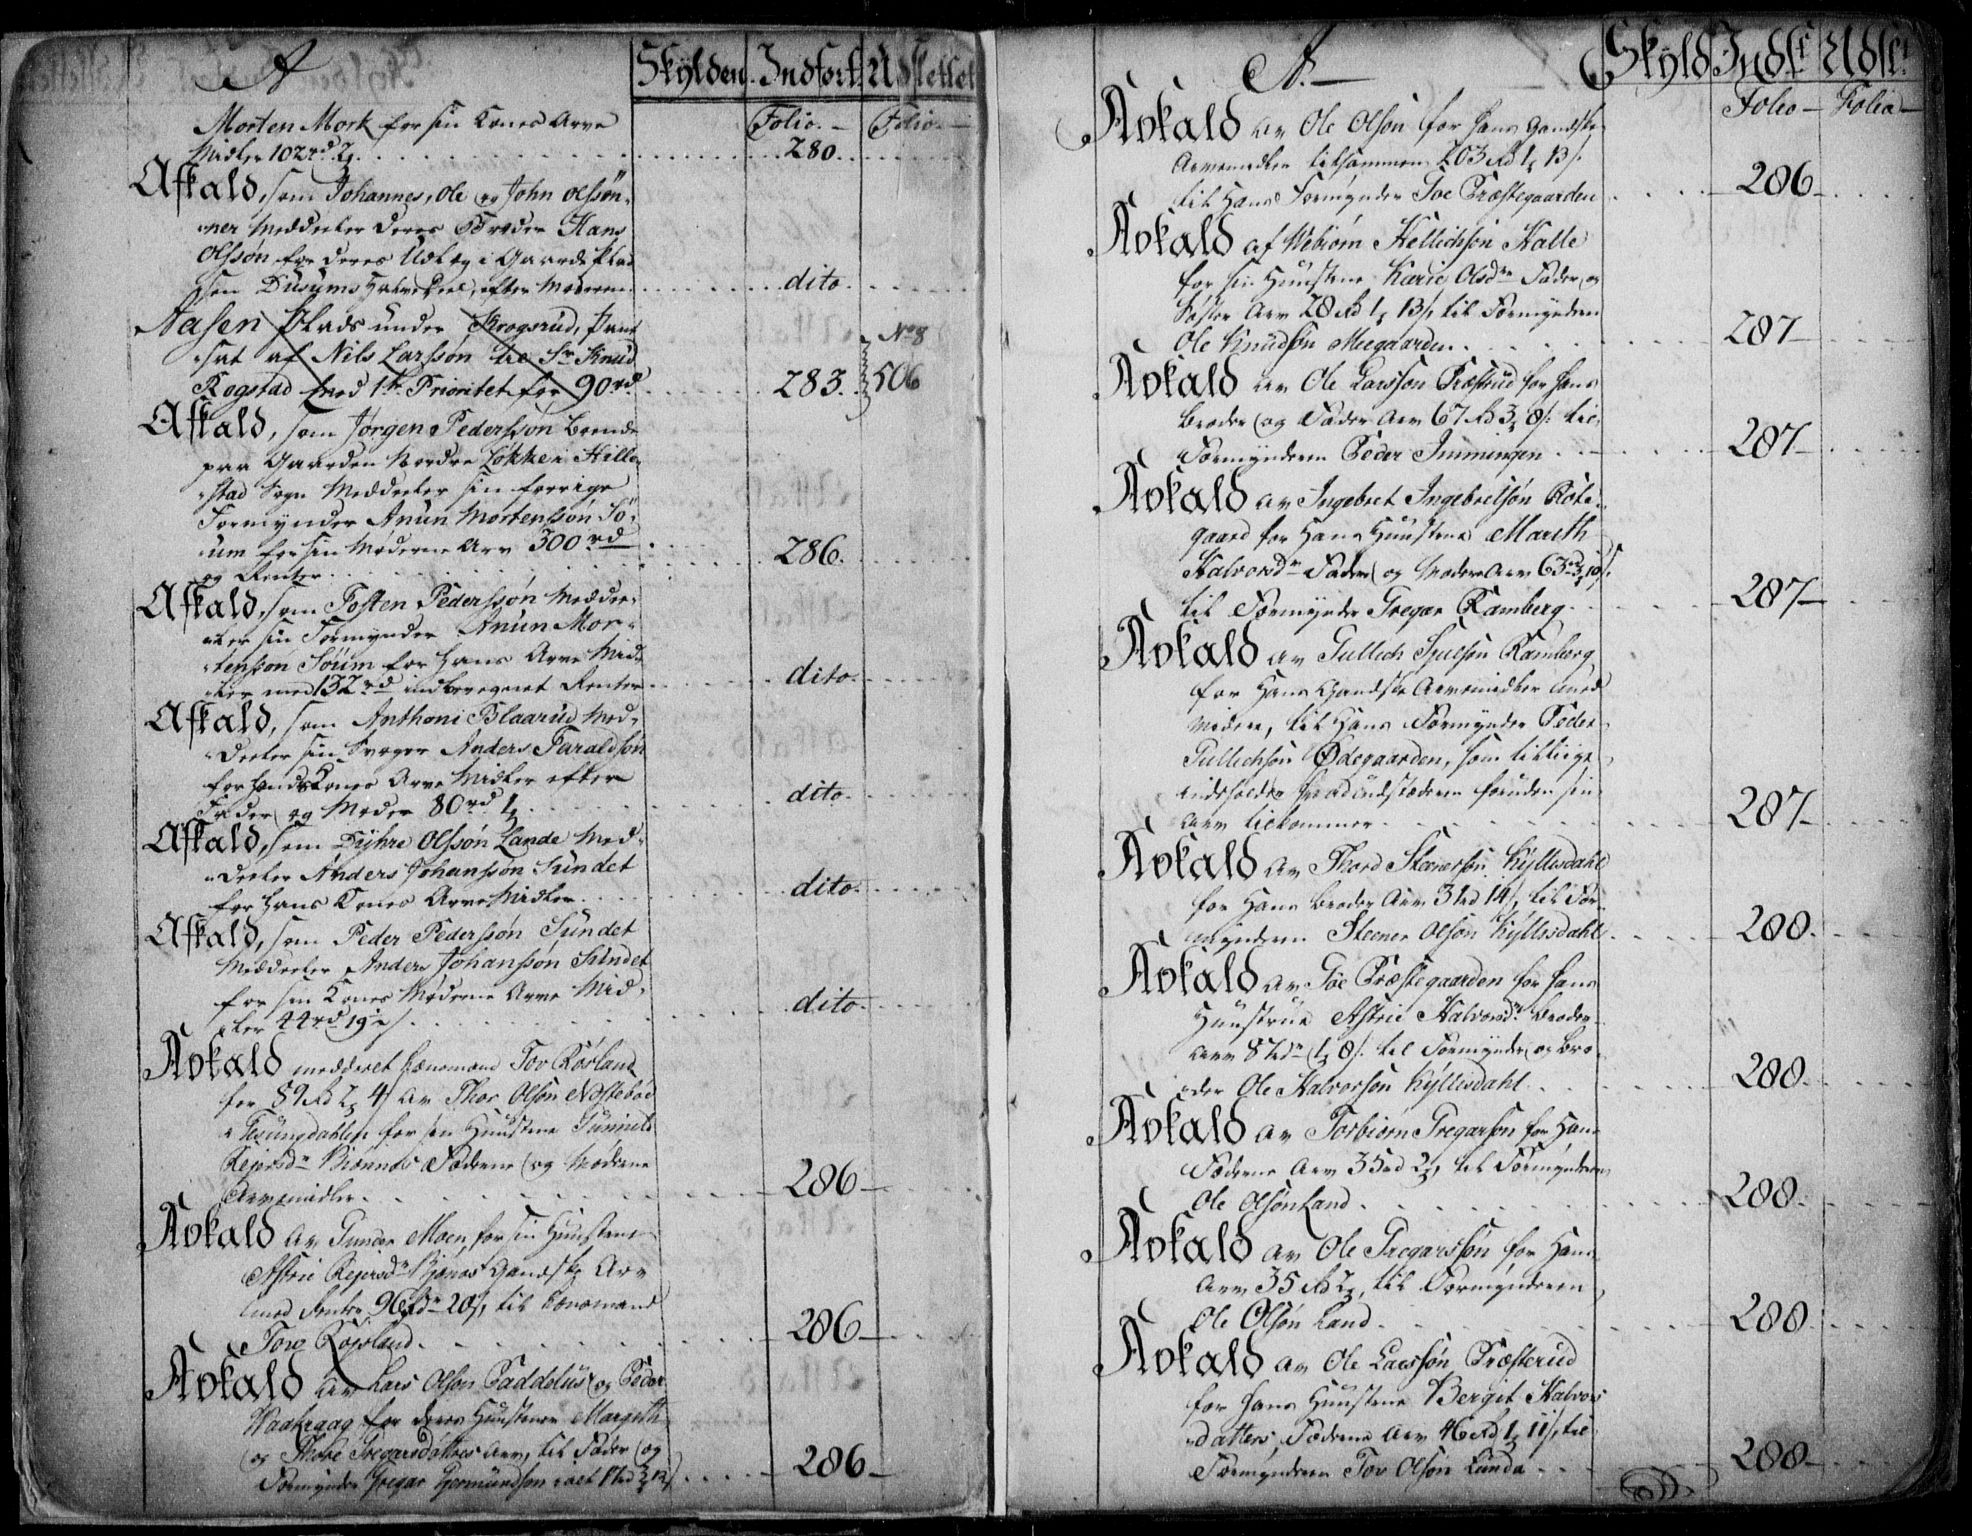 A
Skylden. Indført Udslettet
Folio. Folio.
Morten Mork for sin Kones Arve
Midler 102 rd 280.
Afkald, som Johannes, Ole og John Olssøn-
ner meddeeler deres Broder Hans
Olssøn for deres Udlæg i Gaarde Plad
sen efter Moderen dito.
Aasen Plads under Krogsrud, pant
sat af Nils Larssøn til Sr Knud No 8
Rogstad med 1te Prioritet for 90 rd. 283. 506
Afkald, som Jørgen Pederssøn boende
paa Gaarden Nordre Løkke i Hille-
stad Sogn meddeeler sin forrige
Formynder Anun Mortenssøn Sø-
um for sin Møderne Arv 300 rd
og Renter 286.
Afkald, som Tosten Pederssøn meddee-
ler sin Formynder Anun Mor-
tenssøn Søum for hans Arve Mid-
ler med 132 rd indberegnet Renter dito.
Afkald, som Anthoni Blaarud med-
deeler sin Svoger Anders Taraldsøn
for hands Kones Arve Midler efter
Fader og Moder 80 rd dito.
Afkald, som Olssøn Lande med-
deeler Anders Johanssøn Sundet
for hans Kones Arve Midler dito.
Afkald, som Peder Pederssøn Sundet
meddeeler Anders Johanssøn Sundet
for sin Kones Møderne Arve Mid-
ler 44 rd 19 s dito.
Avkald meddeelt Lænsmand Tov Rørland
for 89 Rd 4 s av Thor Olsøn
for sin Huustrue Gunnild
Fæderne og Møderne
Arvemidler 286
Avkald av Gunder Moen for sin Huustrue
Astrie gandske Arv
med Renter 96 Rd 20 s, til Lænsmand
Tov 286
Avkald av Lars Olsøn og Peder
for deres Huustruer Margith
og Arv, til Fader og
Formynder Gregar 286
A.
Skyld Indft Udslt
Folio Folio
Avkald av Ole Olsøn for hans gandske
Arvemidler tilsammen 203 Rd 1 13 s.
til hans Formynder Toe Præstegaarden 286
Avkald af Webiørn Kellichsøn Halle
for sin Huustrue Karie Olsdr Fader og
Søster Arv 28 Rd 1 13 s, til Formynderen
Ole Knudsøn Moegaarden 287
Avkald av Ole Larssøn Præstrud for hans
Broder og Fader Arv 67 Rd 3 8 s. til
Formynderen Peder Immingen 287
Avkald av Ingebret Ingebretsøn Rote-
gaard for hans Huustrue Mareth
Halvorsdr Fader og Moder Arv 63 rd 3 10 s.
til Formynder Gregar Ramberg 287
Avkald av Gullich Ramberg
for hans gandske Arvemidler med
til hans Formynder Peder
Gullichsøn Ødegaarden, som tillige
indeholder foruden sin
Arv tilkommer 287
Avkald av Thord Steenersøn Kyllisdahl
for hans Broder Arv 3 Rd 14 s, til For-
mynderen Steener Olsøn Kyllisdahl 288.
Avkald av Toe Præstegaarden for hans
Huustrue Astrie Halvorsdr Broder
Arv 8 Rd 1 8 s. til Formynder og Bro-
der Ole Halvorsøn Kyllisdahl 288
Avkald av Torbiørn Gregarsøn for hans
Fæderne Arv 35 rd 2, til Formynderen
Ole Olsøn Land 288.
Avkald av Ole Gregarssøn for hans
Arv 35 Rd 2, til Formynderen
Ole Olsøn Land 288
Avkald av Ole Larssøn Præsterud
for hans Huustrue Bergit Halvors
datters Fæderne Arv 46 Rd 1 11 s, til
Formynderen Tov Olsøn Lunda 288